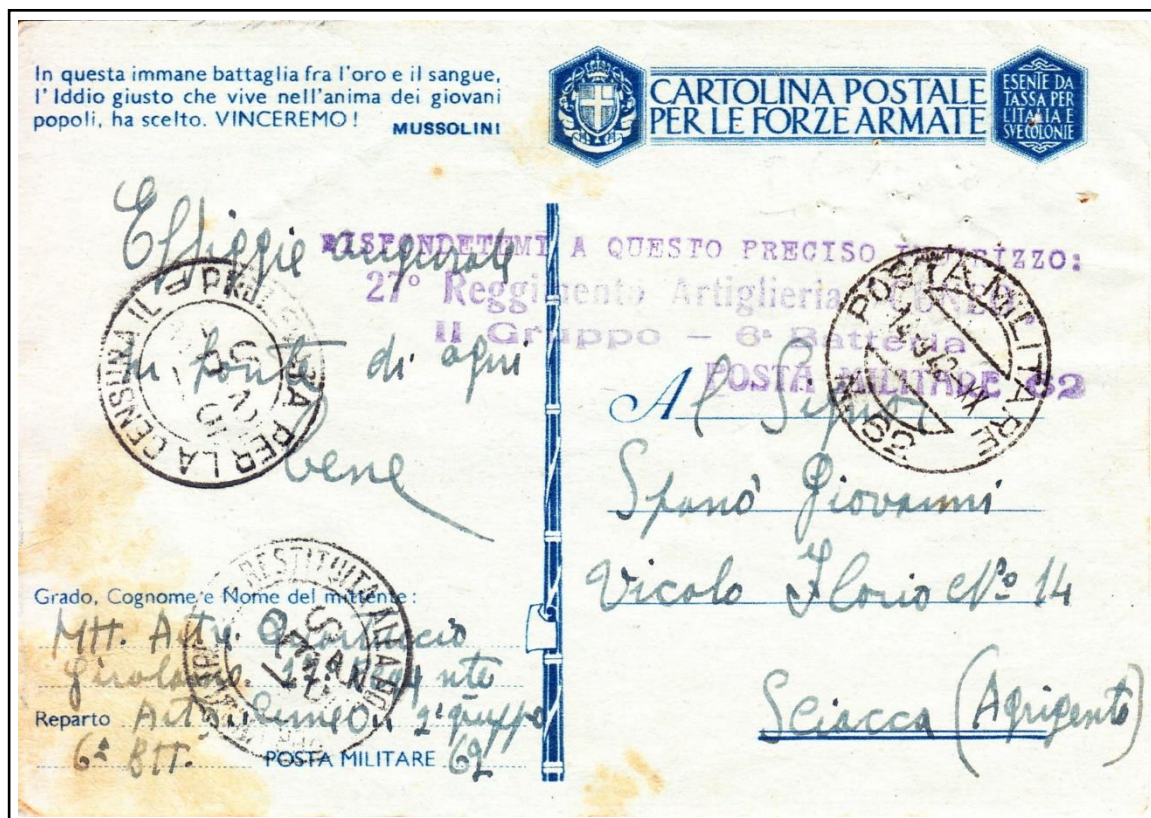 In questa immane battaglia fra l'oro e il sangue,
l'Iddio giusto che vive nell'anima dei giovani
popoli, ha scelto. VINCEREMO !
MUSSOLINI
CARTOLINA POSTALE
PER LE FORZE ARMATE
ESENTE DA
TASSA PER
L'ITALIA E
SVE COLONIE
RISPONDETEMI A QUESTO PRECISO INDIRIZZO:
27° Reggimento Artiglieria CUNEO
II Gruppo - 6ª Batteria
POSTA MILITARE 62
Effiggie augurale
di fonte di ogni
bene
PER LA CENSURA IL
POSTA MILITARE
RESTITUITA AL
Al Signor
Spanò Giovanni
Vicolo Florio Nº 14
Sciacca (Agrigento)
Grado, Cognome e Nome del mittente:
Girolamo
Reparto
2º gruppo
6ª BTT.
POSTA MILITARE 62